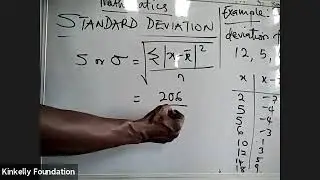 Mathematics
STANDARD DEVIATION
S or σ = √ Σ|x-x̄|²
n
= 206
Example:
deviation
12, 5,
x
2
5 -4
5 -4
6 -3
10 1
12 3
14 5
18 9
Kinkelly Foundation